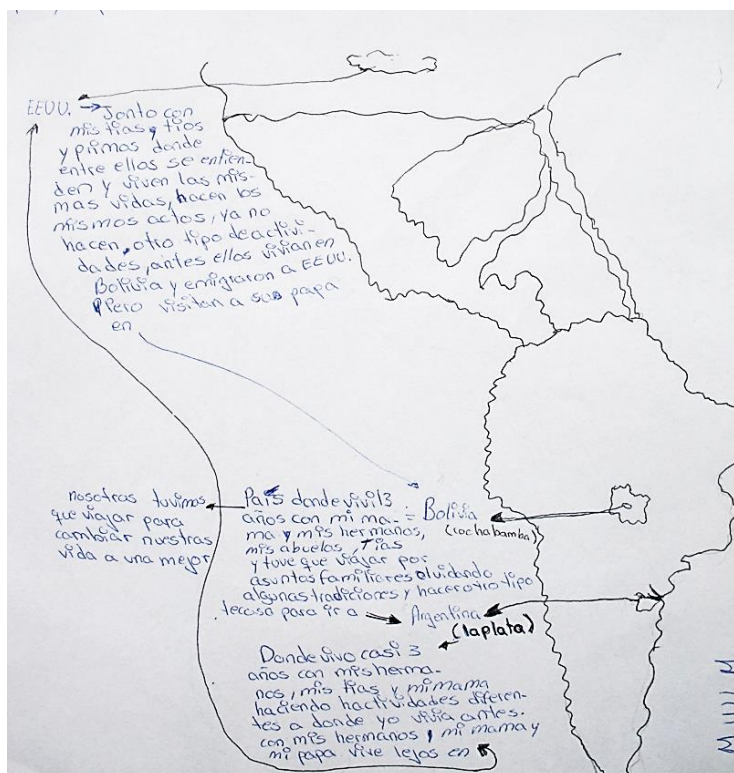 EEUU. → Jonto con
mis tias, tios
y primas donde
entre ellos se entien-
den y viven las mis-
mas vidas, hacen los
mismos actos, ya no
hacen, otro tipo de activi-
dades, antes ellos vivian en
Bolivia y emigraron a EEUU.
Pero visitan a sus papa
en
nosotras tuvimos
que viajar para
cambiar nuestras
vida a una mejor
País donde vivi 13
años con mi ma-
ma y mis hermanos,
mis abuelos, tias
y tuve que viajar por
asuntos familires olvidando
algunas tradiciones y hacer otro tipo
te cosa para ir a
= Bolivia
(cochabamba)
Argentina
(la plata)
Donde vivo casi 3
años con mis herma-
nos, mis tias y mi mama
haciendo hactividades diferen-
tes a donde yo vivia antes.
con mis hermanos, mi mama y
mi papa vive lejos en